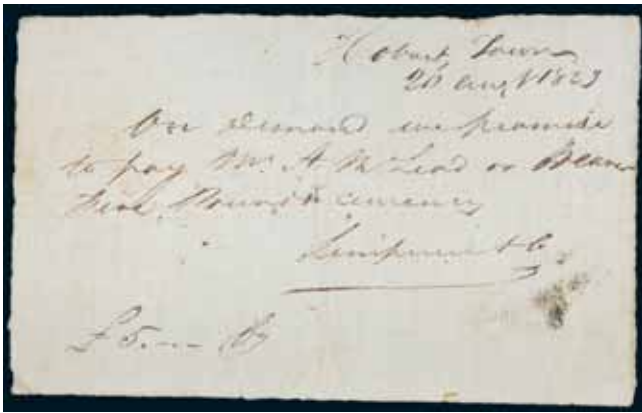 Hobart Town
20 Augt 1823
On demand we promise
to pay Mr. A McLeod or Bearer
five Pounds currency
& Co.
£5